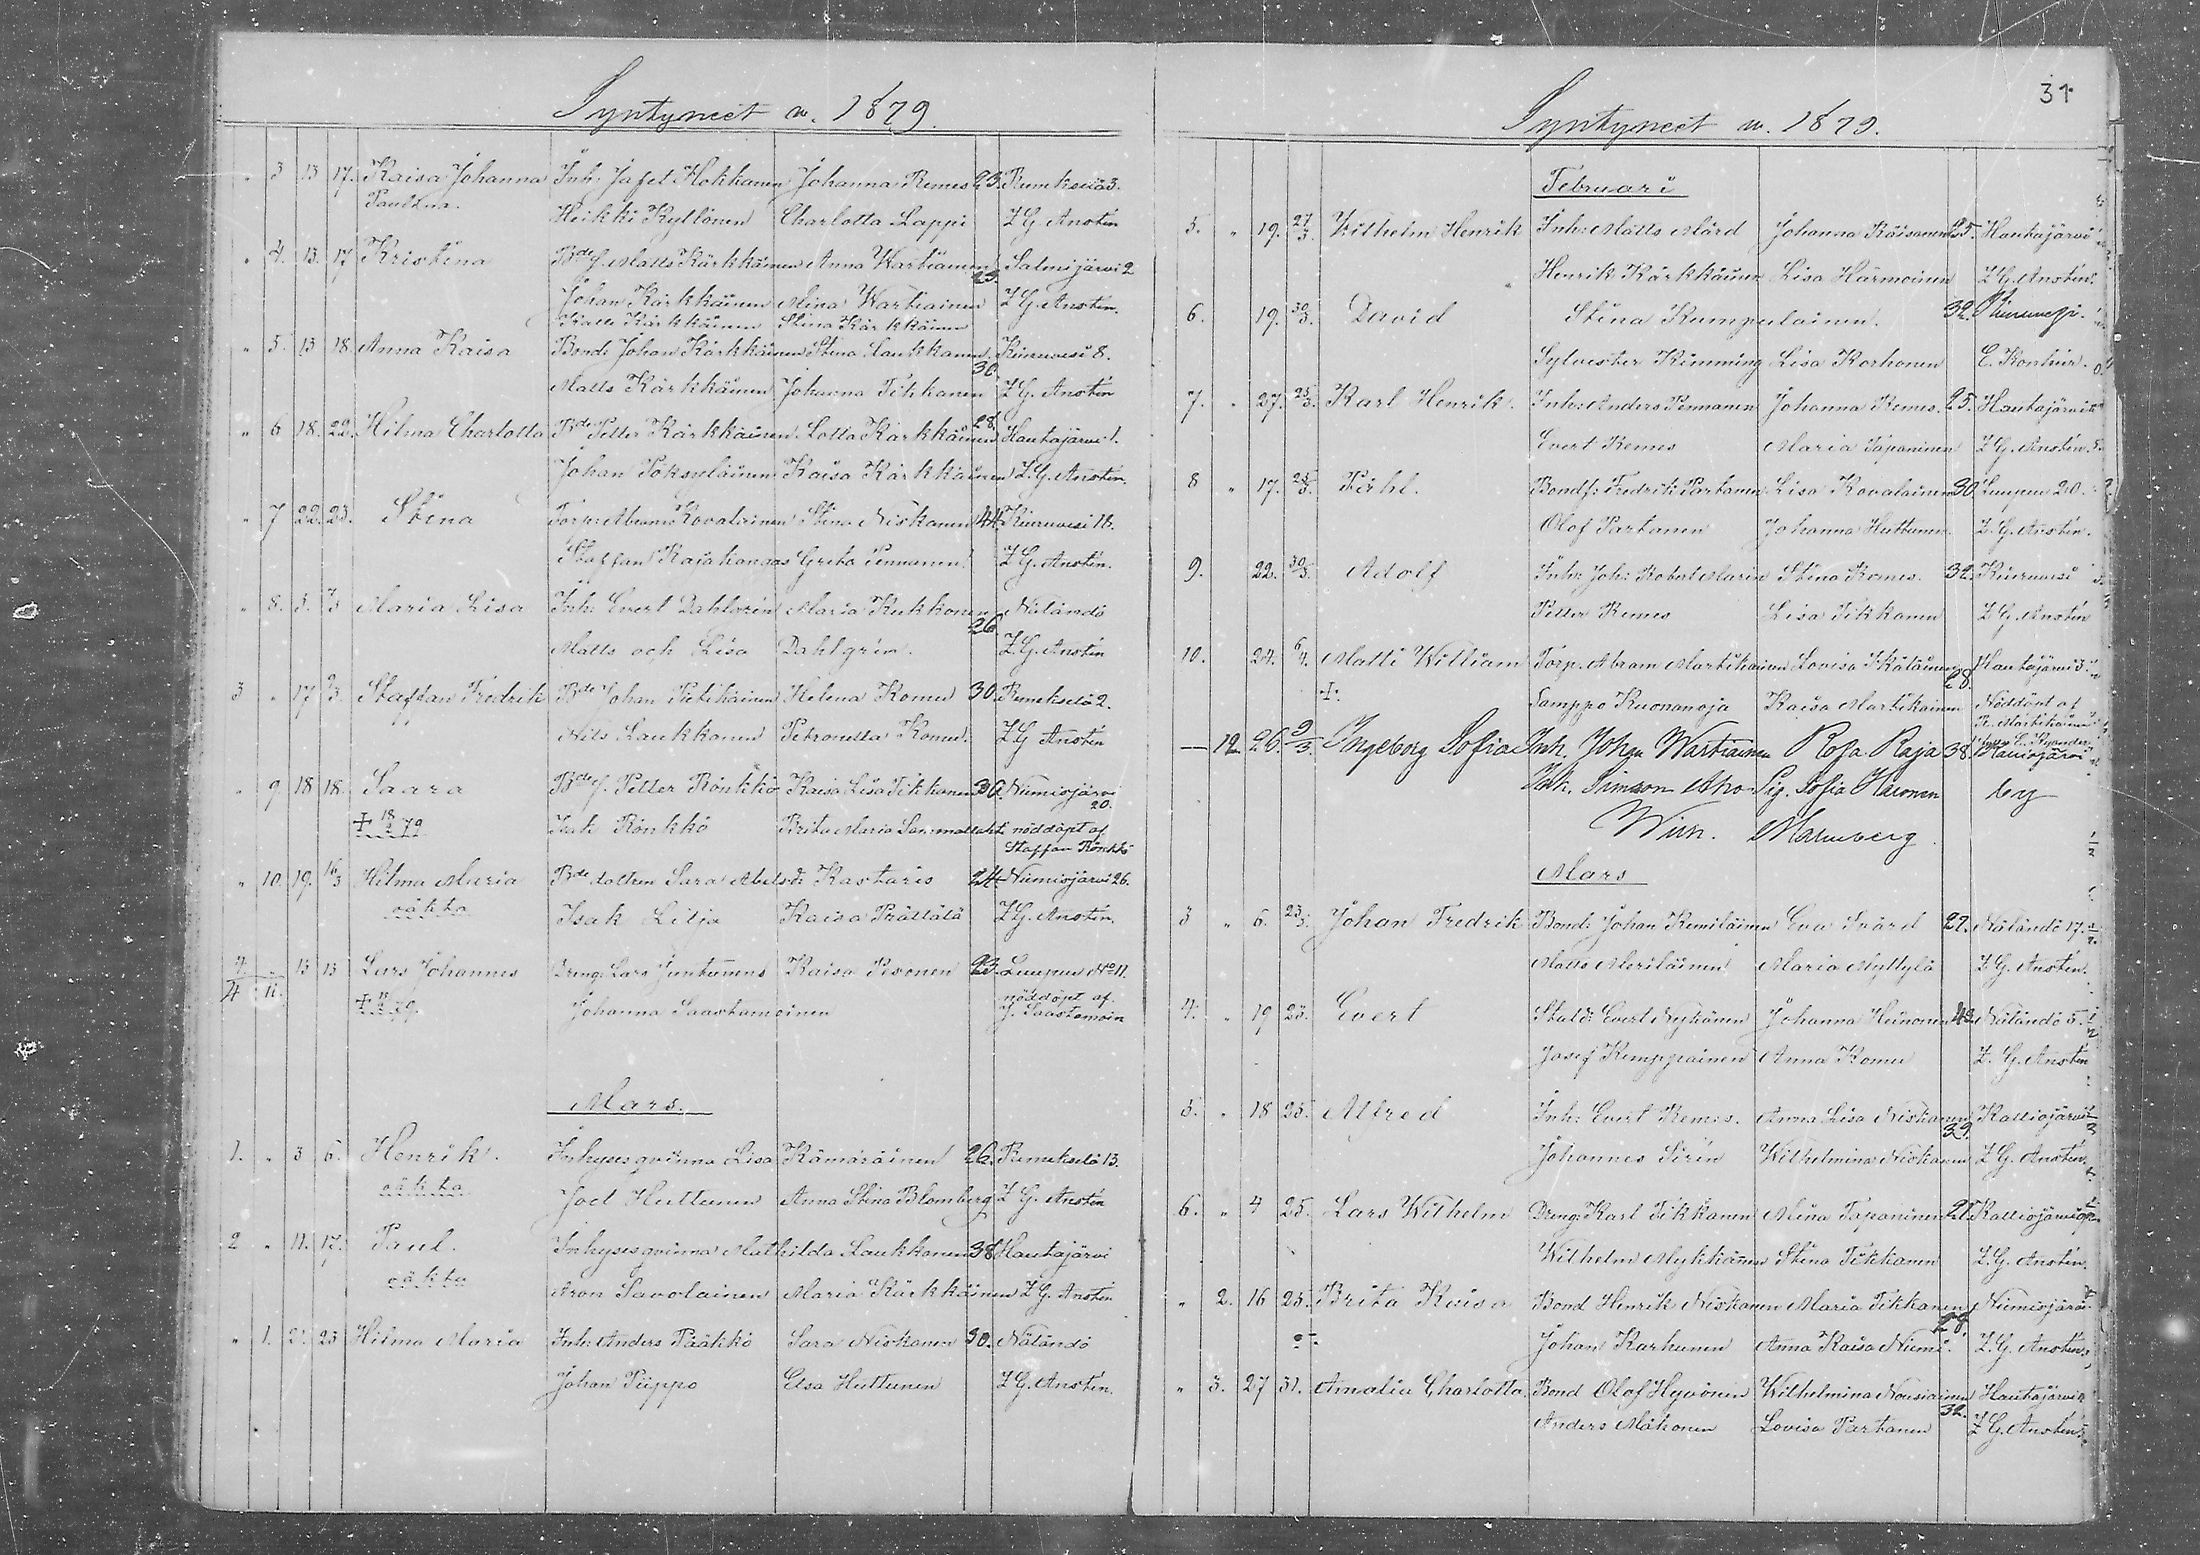 Syntyneet v. 1879.
" 3 13 17. Kaisa Johanna Inh: Jafet Hokkanen Johanna Remes 23. Remekselä 3.
Heikki Kyllönen Charlotta Lappi Z G Anstén
" 4. 13. 17 Kristina Bdef. Matts Kärkkäinen Anna Wartiainen 23. Salmijärvi 2
Johan Kärkkäinen Mina Wartiainen Z G Anstén.
Kalle Kärkkäinen Stina Kärkkäinen
" 5. 13 18. Anna Kaisa Bond: Johan Kärkkäinen Stina Laukkanen 30. Kiuruvesi 8.
Matts Kärkkäinen Johanna Tikkanen Z G. Anstén
" 6 18. 22. Hilma Charlotta Bde Petter Kärkkäinen Lotta Kärkkäinen 28. Hautajärvi 1.
Johan Toksuläinen Kaisa Kärkkäinen Z. G. Anstén.
" 7 22. 23. Stina Torp: Abram Kovalainen Stina Niskanen 44. Kiuruvesi 11.
Staffan Rajakangas Greta Pennanen Z G. Anstén.
" 8. 5. 7/3 Maria Lisa Inh: Evert Dahlgrén Maria Kukkonen 26. Näländö
Matts och Lisa Dahlgrén. Z. G. Anstén
3 " 17 9/3. Staffan Fredrik Bde Johan Pietikäinen Helena Komu 30. Remekselä 2.
Nils Laukkanen Petronella Komu. Z G Anstén
" 9 18 18. Saara Bdef. Petter Rönkkö Kaisa Lisa Tikkanen 36. Niemisjärvi 20.
+ 18/2 79 Isak Rönkkö Brita Maria Sammallaht. nöddöpt af
Staffan Rönkkö
" 10. 19. 16/3 Hilma Maria Bde dottren Sara Abelsd: Kastaris 24 Niemisjärvi 26.
oäkta Isak Lilja Kaisa Prättälä Z G. Anstén.
4. 13 13 Lars Johannes Dräng: Lars Juntunens Kaisa Pesonen 23. Luupu No 11.
4 11. nöddöpt af
Johanna Saastamoinen J. Saastamoin
Mars.
1. " 3 6. Henrik. Inhysesqvinna Lisa Kämäräinen 26. Remekselä 13.
oäkta Joel Huttunen Anna Stina Blomberg Z G. Anstén
2 " 11. 17. Paul. Inhysesqvinna Mathilda Laukkanen 38 Hautajärvi
oäkta Aron Savolainen Maria Kärkkäinen Z G. Anstén
" 1. 21. 23 Hilma Maria Inh: Anders Pääkkö Sara Niskanen 30. Näländö
Johan Piippo Elsa Huttunen Z G. Anstén.
31
Syntyneet v. 1879.
Februari
5. " 19. 27/3. Wilhelm Henrik Inh: Matts Mård Johanna Räisänen 25. Hautajärvi
Henrik Kärkkäinen Lisa Härmoinen Z G. Anstén.
6. 19. 30/3. David Stina Kumpulainen. 32.
Sylvester Kimming Lisa Korhonen
7. " 27. 25/3. Karl Henrik. Inh: Anders Pennanen Johanna Remes. 25. Hautajärvi
Evert Remes Maria Tapaninen Z G. Anstén.
8 " 17. 25/3. Påhl. Bondf: Fredrik Partanen Lisa Kovalainen 30. Luupu 20.
Olof Partanen Johanna Huttunen Z. G. Anstén.
9. 22. 30/3. Adolf Inh: Joh: Robert Marin Stina Komu. 32. Kiuruvesi
Petter Remes Lisa Tikkanen Z G. Anstén
10. 24. 6/4. Matti William Torp. Abram Martikainen Lovisa Ikäläinen 28. Hautajärvi 3.
+. Samppo Ruonanoja Kaisa Martikainen Nöddöpt af
K. Martikainen
— 12. 26. 9/3. Ingeborg Sofia Inh. Johan Wartiainen Rosa Raja 38.
Inh. Simson Aho Pig. Sofia Haronen by
Wirn. Malmberg
Mars
3 " 6. 23/3. Johan Fredrik Bond: Johan Remiläinen Eva Svärd 22. Näländö 17.
Matts Meriläinen Maria Myllylä Z G. Anstén.
4. " 19 23. Evert Statd: Evert Nykänen Johanna Heinonen 43. Näländö 5.
Josef Kemppainen Anna Komu Z. G. Anstén
5. " 18 25. Alfred Inh: Evert Remes. Anna Lisa Niskanen 39. Kalliojärvi
Johannes Sirén Wilhelmina Niskanen Z G. Anstén.
6. " 4 25. Lars Wilhelm Dreng: Karl Tikkanen Mina Tapaninen 21. Kalliojärvi
Wilhelm Mykkänen Stina Tikkanen Z. G. Anstén.
" 2. 16 25. Brita Kaisa Bond Henrik Niskanen Maria Tikkanen 28. Niemisjärvi
Johan Karhunen Anna Kaisa Niemi. Z. G. Anstén.
" 3. 27 31. Amalia Charlotta Bond Olof Hyvönen Wilhelmina Nousiainen 32. Hautajärvi
Anders Mähönen Lovisa Partanen Z G. Anstén.